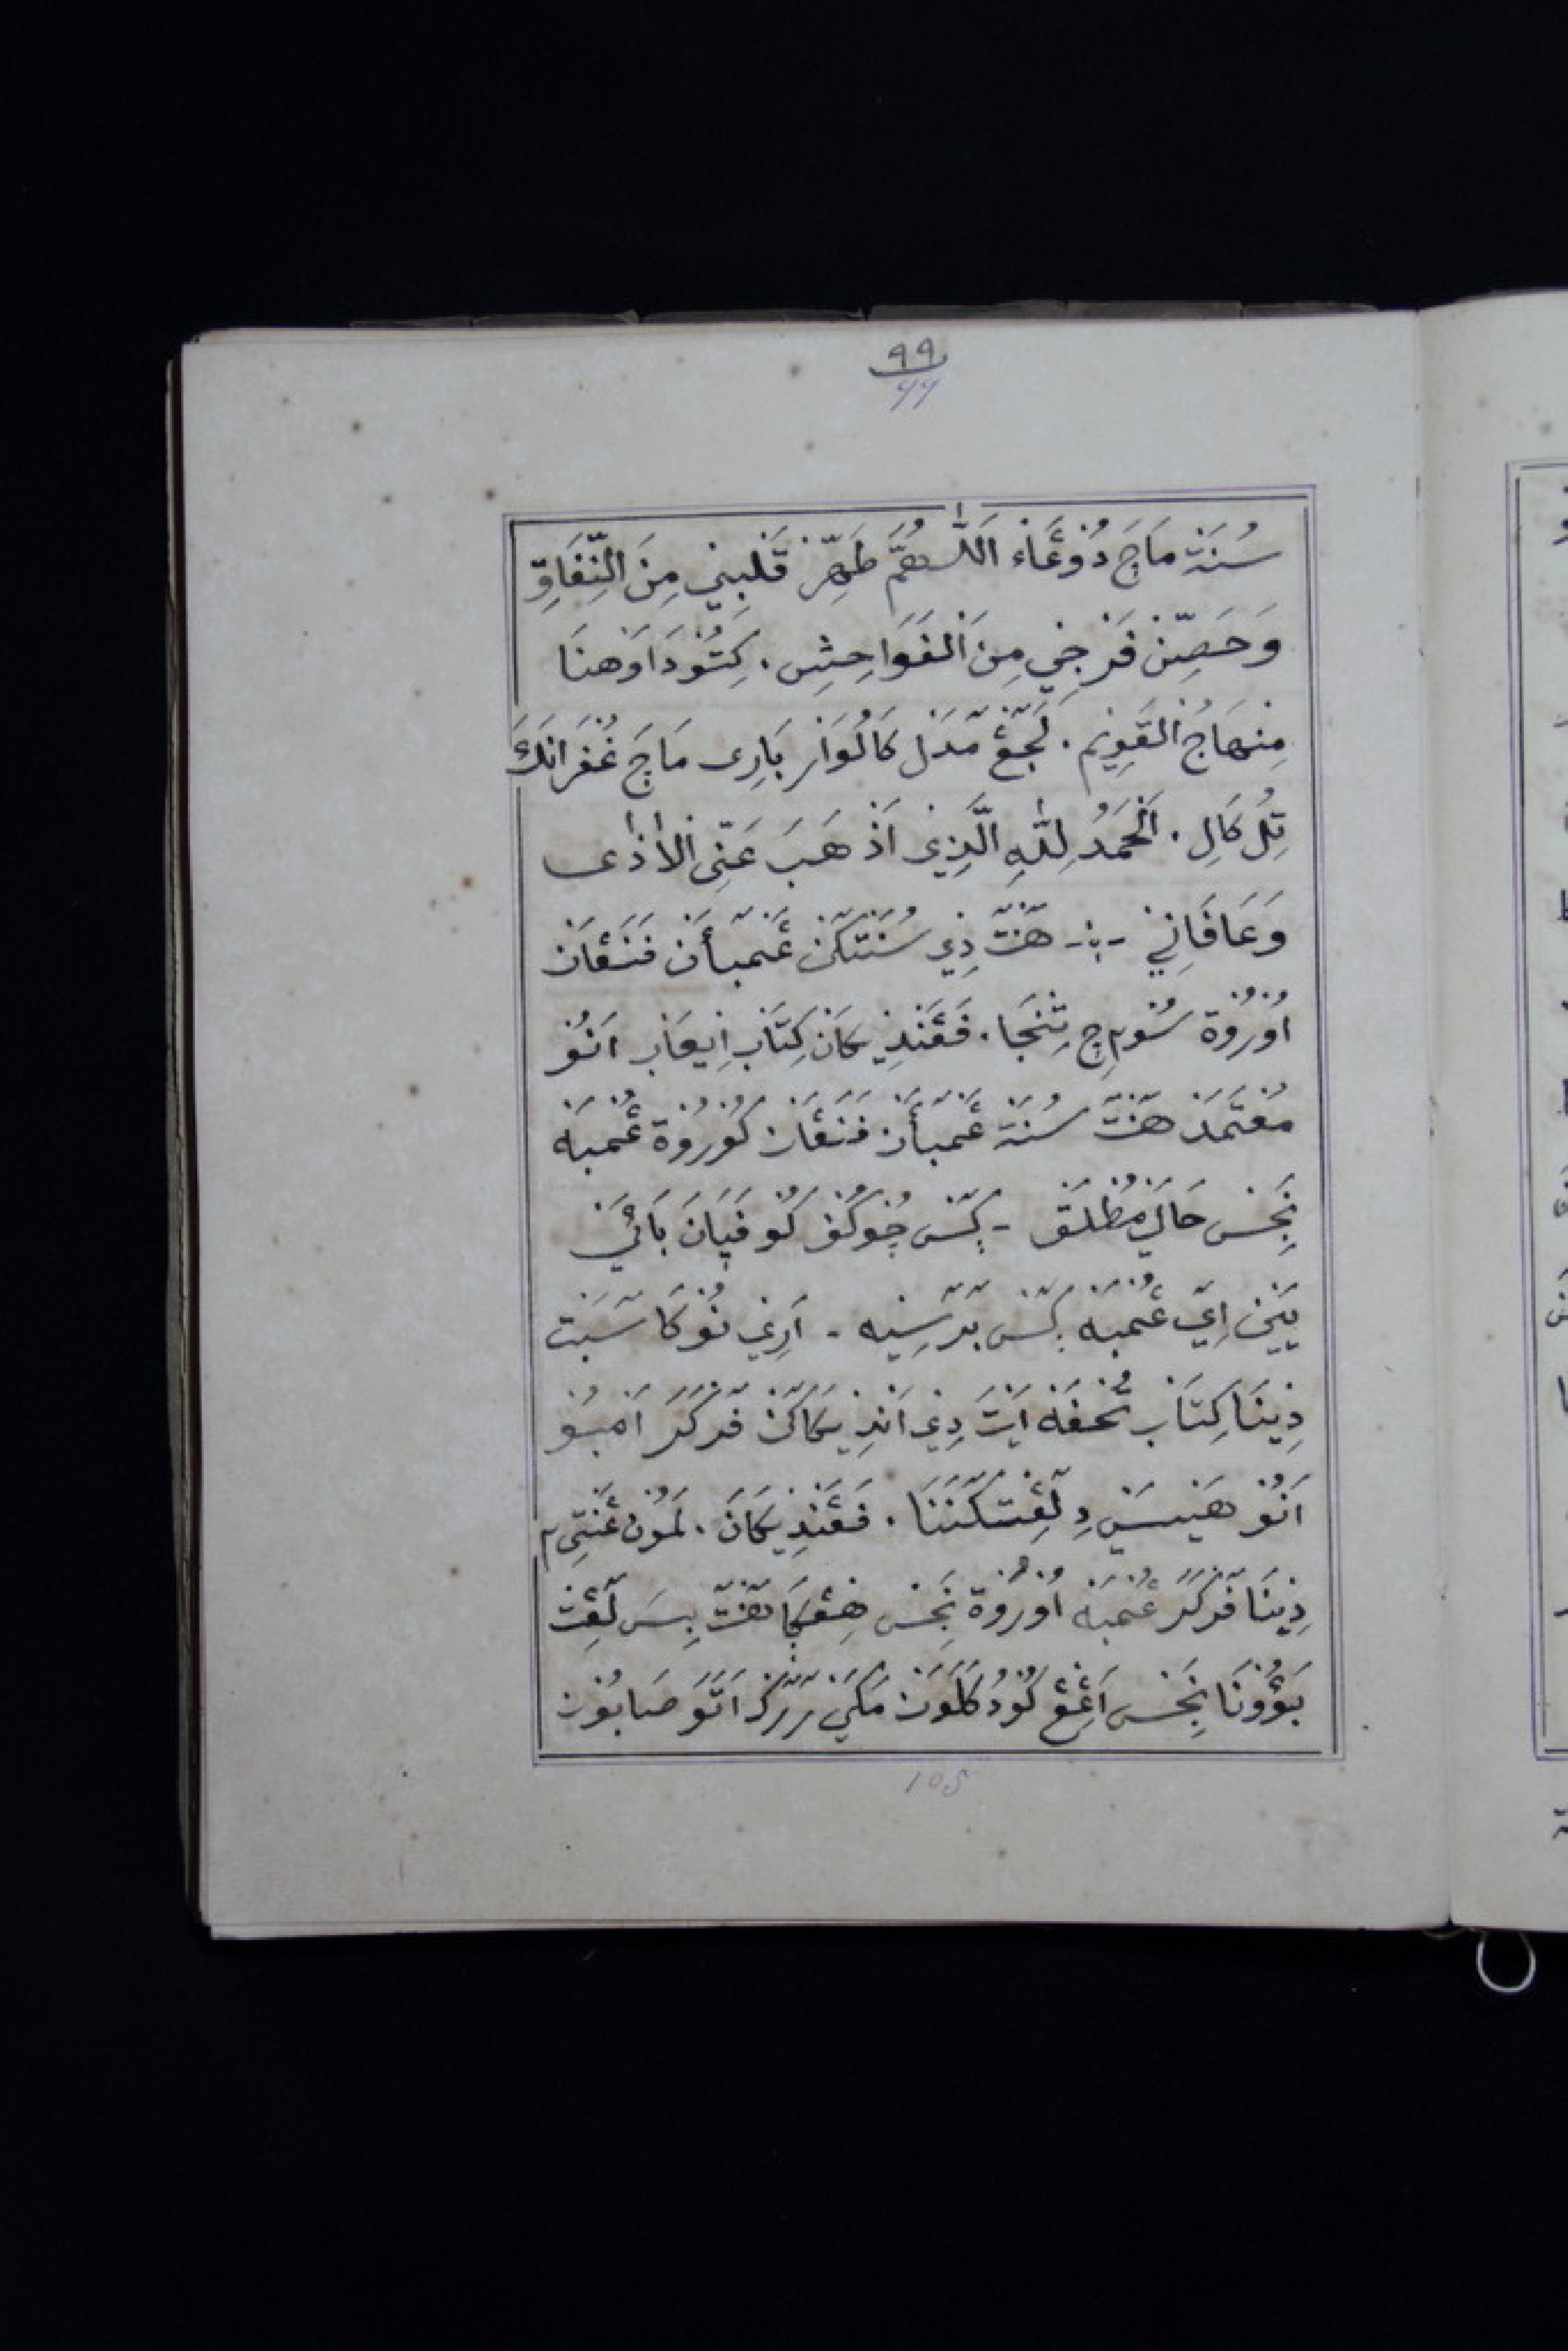 ٩٩
٩٩
سُنَةْ مَاچَ دُوْعَاءْ اَللّٰهُمَّ طَهِّرْ قَلْبِيْ مِنَ النِّفَاقِ
وَحَصِّنْ فَرْجِيْ مِنَ الْفَوَاحِشِ. كِتُوْدَاوَهْنَا
مِنْهَاجُ الْقَوِيْم. لَجَّڠْ مَدَلْ كَالُوَارْ بَارِى مَاچَ غُفْرَانَكَ
تِلُ كَالِ. اَلْحَمْدُ لِلّٰهِ الَّذِيْ اَذْهَبَ عَنِّى الْاَذٰى
وَعَافَانِيْ - هَنْتَ دِيْ سُنَتَّكَنْ عَمْبَأَنْ فَنَڠَانْ
اُوْرُوْةْ سُوْمِ چِ تِنْجَا. فَڠَنْدِيْكَانْ كِتَابْ اِيْعَابْ اَنُوْ
مُعْتَمَدْ هَنْتَ سُنَةْ عَمْبَأَنْ فَنَڠَانْ كُوْرُوْةْ عُمْبَهْ
نَجِسْ حَالَيْ مُطْلَقْ - كَسْ جُوْكُفْ كُوْ فَيَانَ بَائَيْ
يَيْنْ اِيَّ عُمْبَهْ كَسْ بَرْسِيْهْ - اَرِيْ نُوْ كَاسَبَتْ
دِيْنَا كِتَابْ تُحْفَةْ اَيْتَ دِيْ اَنْدِيْكَاكَنْ فَرْكَرَ اَمْبُوْ
اَنُوْ هَنْيْسَيْ دِلَڠِتْكَنَنَا. فَڠَنْدِيْكَانَ. لَمُوْنْ عَنْتِيْ م
دِيْنَا فَرْكَرَ عُمْبَهْ اُوْرُوْةْ نَجِسْ هِڠْكَا هَنْتَ بِسَ لَڠِتْ
بَؤُوْنَا نَجِسْ اَڠِڠْ كُوْدُ كَلَوَنْ مَكَيْ رَرَكْ اَتَوَ صَابُوْن
105